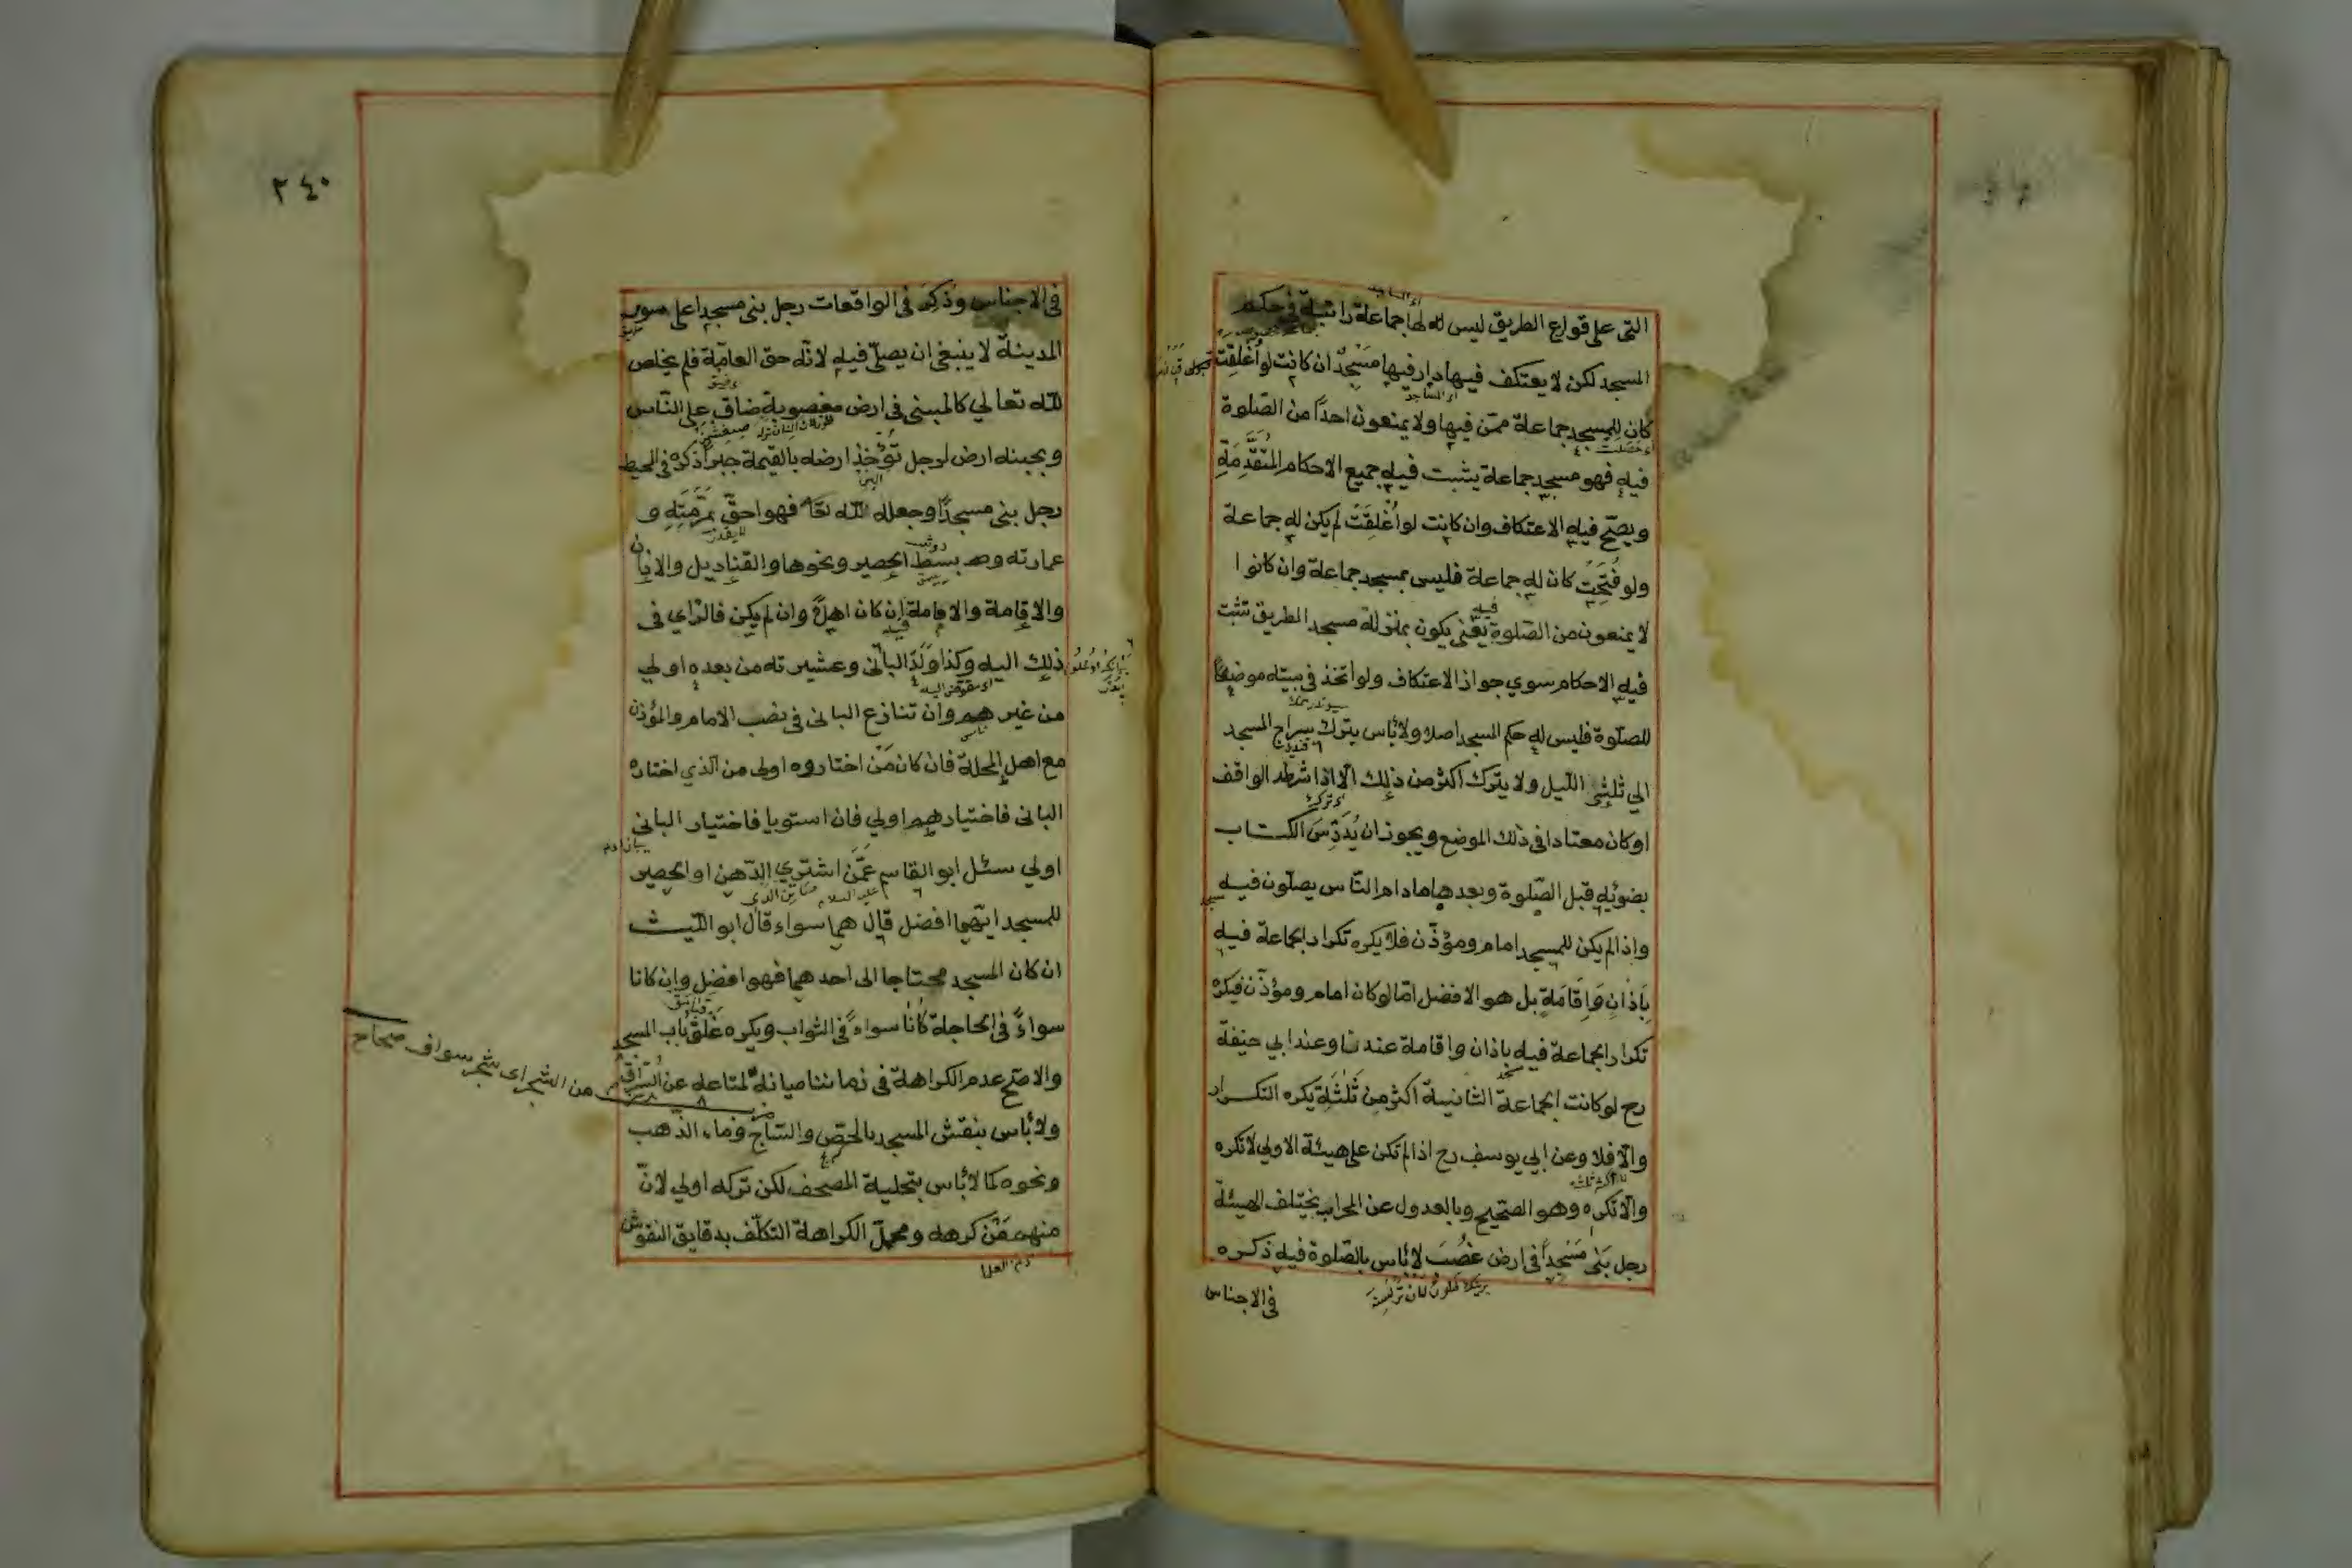 التى على قوارع الطريق ليس لها جماعة راتبة فى حكم
المسجد لكن لا يعتكف فيها دار فيها مَسْجِدٌ ان كانت لو اُغْلِقَتْ
كان للمسجد جماعة ممّن فيها ولا يمنعون احدًا من الصّلوة
فيه فهو مسجد جماعة يثبت فيه جميع الاحكام المُتَقَدِّمَةِ
ويصحّ فيه الاعتكاف وان كانت لو اُغْلِقَتْ لم يكن له جماعة
ولو فُتِحَتْ كان له جماعة فليس بمسجد جماعة وان كانوا
لا يمنعون من الصّلوة يعنى يكون بمنزلة مسجد الطريق تثبت
فيه الاحكام سوي جواز الاعتكاف ولو اتخذ فى بيته موضعًا
للصلّوة فليس له حكم المسجد اصلا ولا بأس بترك سراج المسجد
الي ثلثى اللّيل ولا يترك اكثر من ذلك الّا اذا شرطه الواقف
او كان معتادا فى ذلك الموضع ويجوز ان يُدَرِّسَ الكتاب
بضوئه قبل الصّلوة وبعدها مادام النّاس يصلّون فيه
واذا لم يكن للمسجد امام ومؤذّن فلا يكره تكرار الجماعة فيه
بِاَذَانٍ وَاِقَامَةٍ بل هو الافضل امّا لو كان امام ومؤذّن فيكره
تكرار الجماعة فيه باذان واقامة عندنا وعند ابي حنيفة
رح لو كانت الجماعة الثانية اكثر من ثَلٰثَةٍ يكره التكرار
والّا فلا وعن ابي يوسف رح اذا لم تكن على هيئة الاولي لا تكره
والّا تكره وهو الصّحيح وبالعدول عن المحراب يختلف الهيئة
رجل بَنٰى مَسْجِدًا فى ارض غصب لا بأس بالصّلوة فيه ذكره
فى الاجناس
٢٤٠
فى الاجناس وذُكِرَ فى الواقعات رجل بنى مسجدا على سور
المدينة لا ينبغى ان يصلّى فيه لانّه حقّ العامّة فلم يخلص
للّه تعالي كالمبنى فى ارض مغصوبة ضاق على النّاس
وبجنبه ارض لرجل تُؤْخَذُ ارضه بالقيمة جبرًا ذكره فى المحيط
رجل بنى مسجدًا وجعله للّه تعا فهو احقّ بِمَرَمَّتِهِ و
عمارته وبسط الحصير ونحوها والقناديل والاذان
والاقامة والامامة ان كان اهلًا وان لم يكن فالرّاي فى
ذلك اليه وكذا وَلَدُ البانى وعشيرته من بعده اولي
من غيرهم وان تنازع البانى فى نصب الامام والمؤذن
مع اهل المحلة فان كان مَنْ اختاروه اولى من الّذي اختاره
البانى فاختيارهم اولي فان استويا فاختيار البانى
اولي سئل ابو القاسم عَمَّنْ اشترى الدّهن او الحصير
للمسجد ايّهما افضل قال هما سواء قال ابو اللّيث
ان كان المسجد محتاجا الى احدهما فهو افضل وان كانا
سواءً فى الحاجة كانا سواءً فى الثواب ويكره غلق باب المسجد
والاصحّ عدم الكراهة فى زماننا صيانة لمتاعه عن السّرّاق
من الشجر اى شجر سواف صحاح
ولا بأس بنقش المسجد بالجصّ والسّاج وماء الذّهب
ونحوه كما لا بأس بتحلية المصحف لكن تركه اولي لانّ
منهم مَنْ كرهه ومحمل الكراهة التكلّف بدقايق النقوش